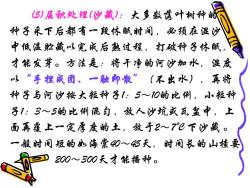 (5)层积处理(沙藏)：大多数落叶树种的
种子采下后都有一段休眠时间，必须在湿沙
中低温贮藏以完成后熟过程，打破种子休眠，
才能发芽。方法是：将干净的河沙加水，湿度
以“手捏成团、一触即散”（不出水），再将
种子与河沙按大粒种子1：5～10的比例，小粒种
子1：3～5的比例混匀，放入沙坑或瓦盆中，上
面再覆上一定厚度的土，放于2～7℃下沙藏。
一般时间短的如海棠40～45天，时间长的山楂要
200～300天才能播种。